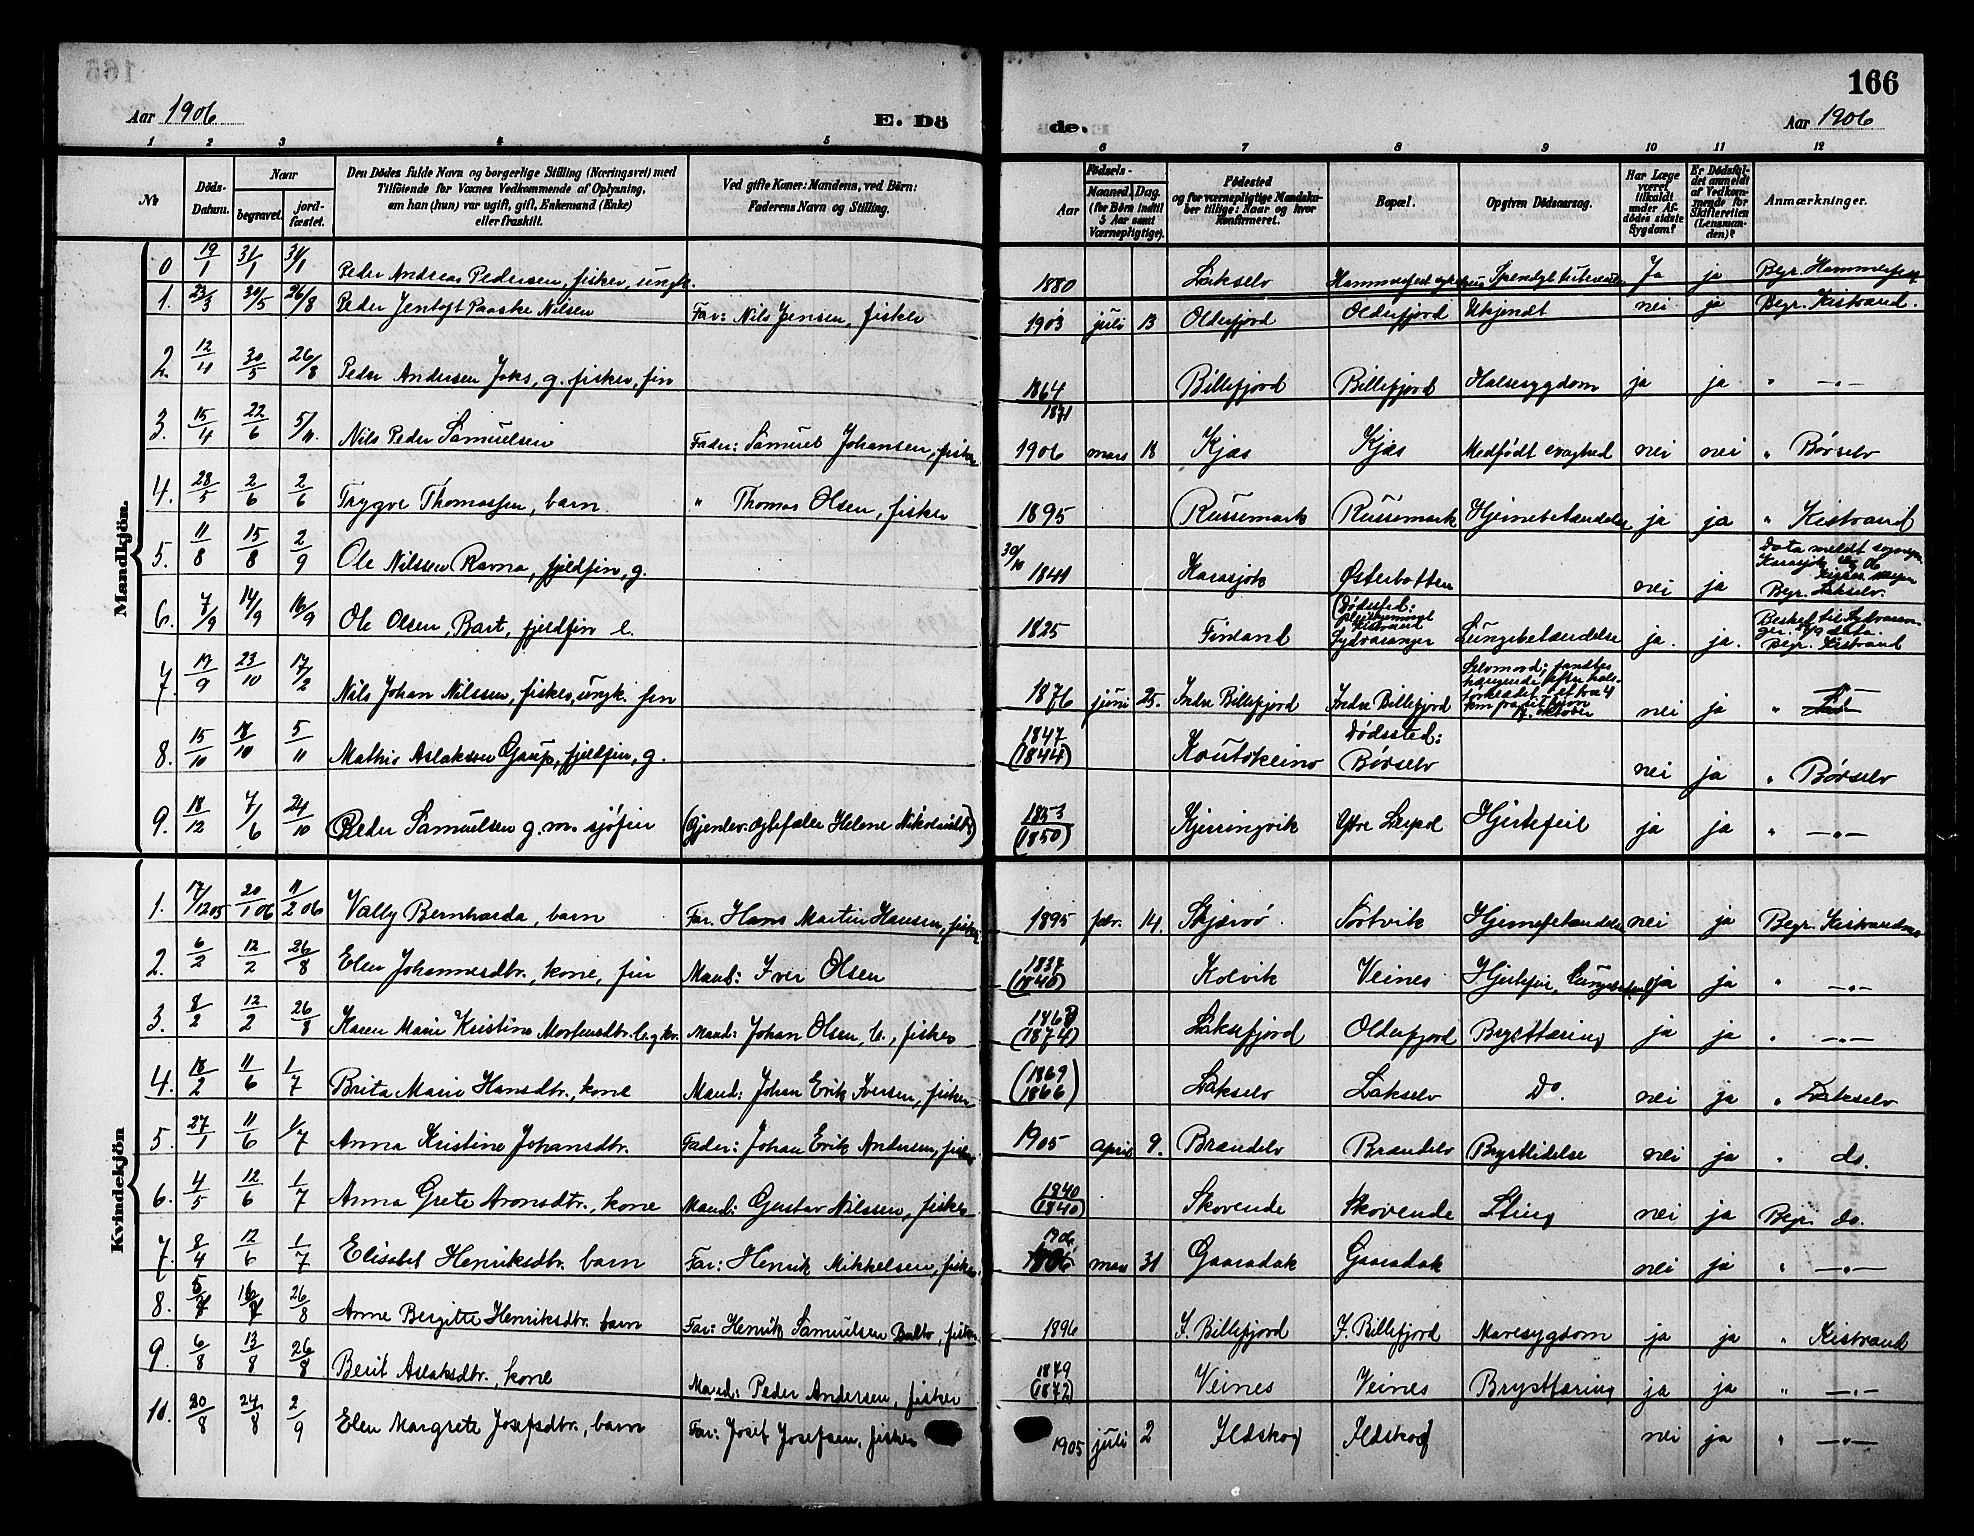 166
Aar 1906
E. Dö
de.
Aar 1906
1 2 3 4 5 6 7 8 9 10 11 12
No
Döds-Datum.
Naar
begravet.
jord-fæstet.
Den Dödes fulde Navn og borgerlige Stilling (Næringsvei) med
Tilföiende for Voxnes Vedkommende af Oplysning,
om han (hun) var ugift, gift, Enkemand (Enke)
eller fraskilt.
Ved gifte Koner: Mandens, ved Börn:
Faderens Navn og Stilling.
Födsels-
Aar
Maaned. Dag.
(for Börn indtil
5 Aar samt
Værnepligtige).
Födested
og for værnepligtige Mandska-
ber tillige: Naar og hvor
Konfirmeret.
Bopæl.
Opgiven Dödsaarsag.
Har Læge
været
tilkaldt
under Af-
dödes sidste
Sygdom?
Er Dödsfal-
det anmeldt
af Vedkom-
mende for
Skifteretten
(Lensman-
den)?
Anmærkninger.
Mandkjön.
0 19/1 31/1 31/1 Peder Andreas Pedersen, fisker, ungk. 1880 Lakselv Hammerfest Ja ja Begr. Hammerfest
1. 23/3 30/5 26/8 Peder Jentoft Paaske Nilsen Far: Nils Jensen, fisker 1903 juli 13 Olderfjord Olderfjord Ukjendt nei ja Begr. Kistrand.
2. 12/4 30/5 26/8 Peder Andersen Joks, g. fisker, fin 1864 1871 Billefjord Billefjord Halsesygdom ja ja " —"—
3. 15/4 22/6 5/11. Nils Peder Samuelsen Fader: Samuel Johansen, fisker 1906 mars 18 Kjæs Kjæs Medfödt svaghed nei nei " Börselv
4. 28/5 2/6 2/6 Trygve Thomassen, barn " Thomas Olsen, fisker 1895 Russemark Russemark Hjernebetændelse ja ja " Kistrand
5. 11/8 15/8 2/9 Ole Nilssen Ravna, fjeldfin, g. 30/10 1841 Karasjok Østerbotten nei ja Data meldt Karasjok Begr. Lakselv.
6. 7/9 14/9 16/9 Ole Olsen, Bart, fjeldfin e. 1825 Finland (Dödssted: pleiehjemmet Kistrand Sydvaranger Lungebetændelse ja. ja. Besked til Sydvaranger. Begr. Kistrand
7. 17/9 23/10 17/2 Nils Johan Nilssen, fisker, ungk. fin 1876 juni 25. Indre Billefjord Indre Billefjord Selvmord; fandtes hængende efter hals-tørklædet i et træ 4 km fra sit hjem 17. oktober nei ja " —"—
8. 15/10 18/10 5/11 Mathis Aslaksen Gaup, fjeldfin, g. 1847 (1844) Koutokeino Dödssted: Börselv nei ja " Börselv
9. 18/12 7/6 24/10 Peder Samuelsen g. m. sjöfin (Gjenlev. ægtefælle Helene Nikolaisd.) 1853 (1850) Kjerringvik Ytre Leipd Hjertefeil ja ja " —"—
Kvindekjön
1. 17/12 05 20/1 06 11/2 06 Vally Bernharda, barn Far. Hans Martin Hansen, fisker 1895 febr. 14. Skjærvö Tortvik Hjernebetændelse nei ja Begr. Kistrand
2. 6/2 12/2 26/8 Elen Johannesdtr. kone, fin Mand: Iver Olsen 1837 (1840) Kolvik Veines Hjertefeil, Lungebet. ja ja " —"—
3. 8/2 12/2 26/8 Karen Marie Kristine Mortensdtr. Mand: Johan Olsen, fisker 1868 (1874) Laksefjord Olderfjord Brysttæring ja ja " —"—
4. 18/2 11/6 1/7 Brita Marie Hansdtr., kone Mand: Johan Erik Iversen, fisker (1869 1866) Lakselv Lakselv Do. nei ja " Lakselv
5. 27/1 11/6 1/7 Anna Kristine Johansdtr. Fader: Johan Erik Andersen, fisker 1905 April 9. Brandelv Brandelv Brystlidelse nei ja " do.
6. 4/5 12/6 1/7 Anna Grete Aronsdtr., kone Mand: Gustav Nilssen, fisker 1840 (1840) Skovende Skovende Sting nei ja Begr. do.
7. 8/4 12/6 1/7 Elisabet Henriksdtr. barn Far: Henrik Mikkelsen, fisker 1906 mars 31 Gaaradak Gaaradak nei ja " —"—
8. 5/8 16/8 26/8 Anne Bergitte Henriksdtr. barn Far: Henrik Samuelsen Balto, fisker 1896 I. Billefjord I. Billefjord Mavesygdom ja ja " Kistrand
9. 6/8 13/8 26/8 Berit Aslaksdtr., kone Mand: Peder Andersen, fisker 1879 (1872) Veines Veines Brysttæring ja ja " —"—
10. 20/8 24/8 2/9 Elen Margrete Josefsdtr., barn Far: Josef Josefsen, fisker 1905 juli 2 Ildskog Ildskog nei ja " —"—